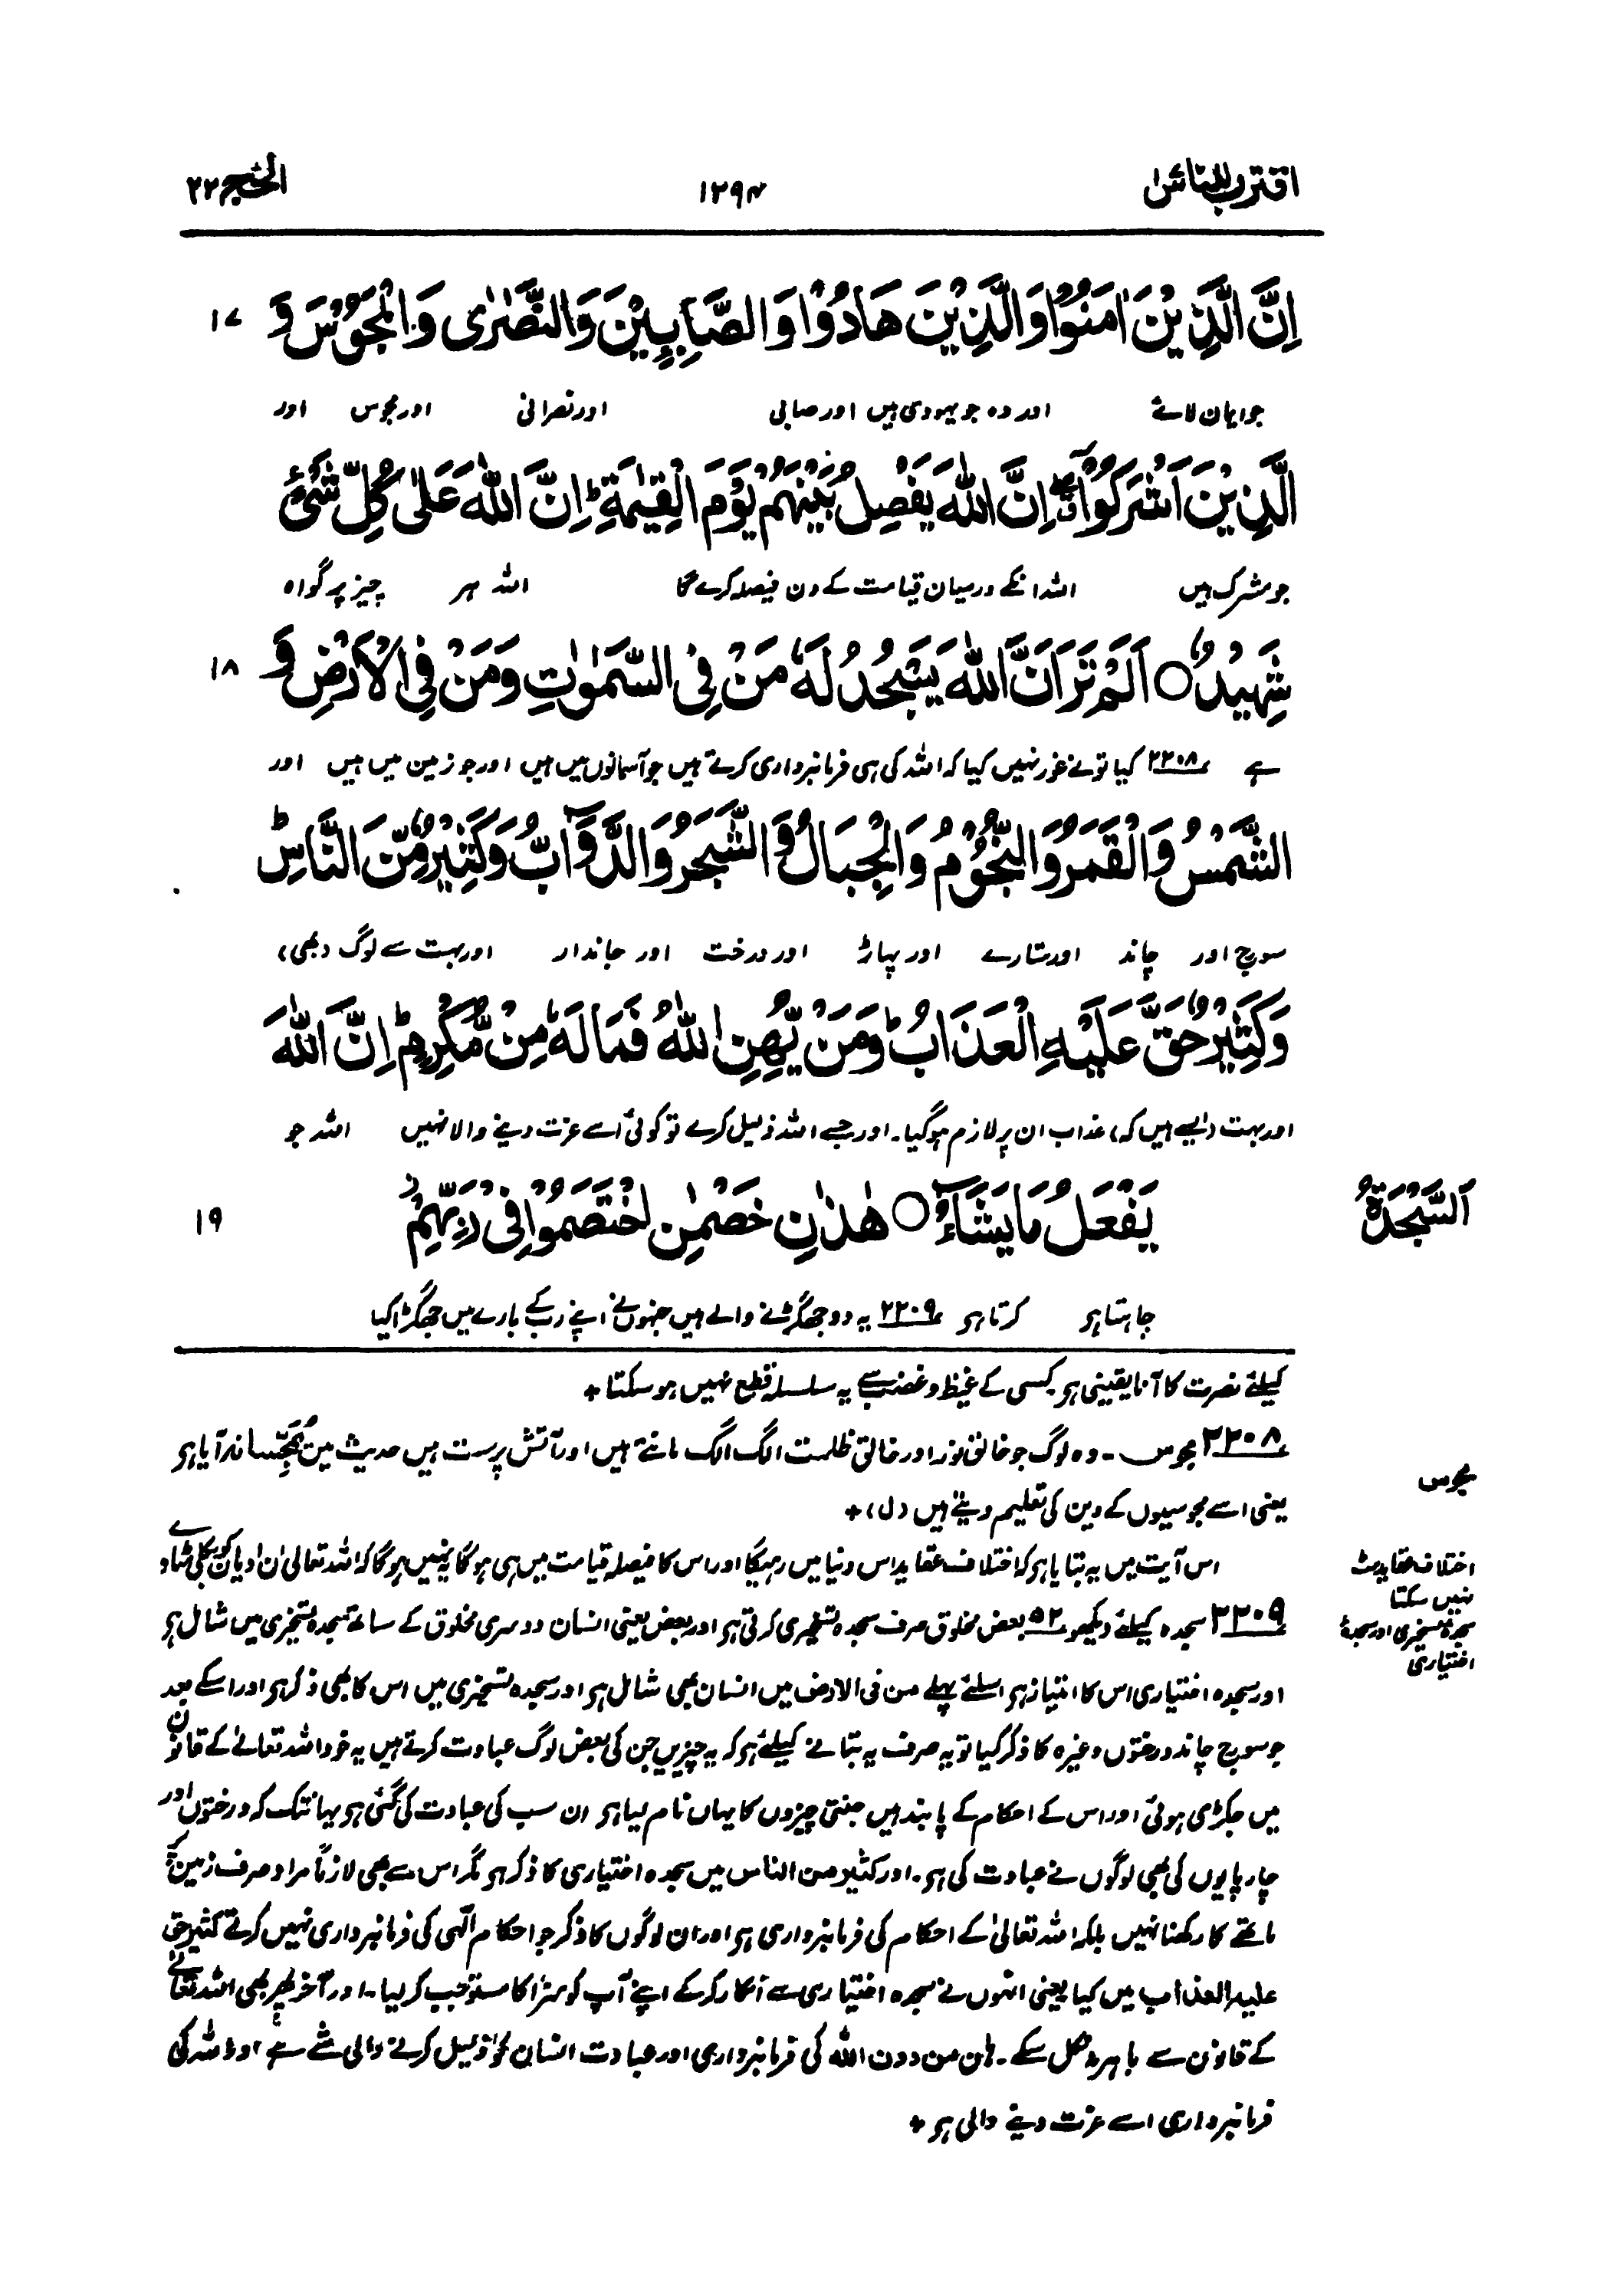 اقترب للناس ۱۲۹۴ الحج ۲۲
اِنَّ الَّذِيْنَ اٰمَنُوْا وَالَّذِيْنَ هَادُوْا وَالصَّابِـِٕيْنَ وَالنَّصٰرٰى وَالْمَجُوْسَ وَ ۱۷
جو ایمان لائے اور وہ جو یہودی ہیں اور صابی اور نصرانی اور مجوس اور
الَّذِيْنَ اَشْرَكُوْٓا ۖ اِنَّ اللّٰهَ يَفْصِلُ بَيْنَهُمْ يَوْمَ الْقِيٰمَةِ ؕ اِنَّ اللّٰهَ عَلٰى كُلِّ شَىْءٍ
جو مشرک ہیں اللہ انکے درمیان قیامت کے دن فیصلہ کرے گا اللہ ہر چیز پر گواہ
شَهِيْدٌ ○ اَلَمْ تَرَ اَنَّ اللّٰهَ يَسْجُدُ لَهٗ مَنْ فِى السَّمٰوٰتِ وَمَنْ فِى الْاَرْضِ وَ ۱۸
ہے ۲۲۰۸ کیا تو نے غور نہیں کیا کہ اللہ کی ہی فرمانبرداری کرتے ہیں جو آسمانوں میں ہیں اور جو زمین میں ہیں اور
الشَّمْسُ وَالْقَمَرُ وَالنُّجُوْمُ وَالْجِبَالُ وَالشَّجَرُ وَالدَّوَآبُّ وَكَثِيْرٌ مِّنَ النَّاسِ ؕ
سورج اور چاند اور ستارے اور پہاڑ اور درخت اور جاندار اور بہت سے لوگ (بھی)
وَكَثِيْرٌ حَقَّ عَلَيْهِ الْعَذَابُ ؕ وَمَنْ يُّهِنِ اللّٰهُ فَمَا لَهٗ مِنْ مُّكْرِمٍ ؕ اِنَّ اللّٰهَ
اور بہت (ایسے ہیں کہ) عذاب ان پر لازم ہوگیا۔ اور جسے اللہ ذلیل کرے تو کوئی اُسے عزت دینے والا نہیں اللہ جو
اَلسَّجْدَةُ يَفْعَلُ مَا يَشَآءُ ○ هٰذٰنِ خَصْمٰنِ اخْتَصَمُوْا فِىْ رَبِّهِمْ ۱۹
چاہتا ہو کرتا ہو ۲۲۰۹ یہ دو جھگڑنے والے ہیں جنہوں نے اپنے رب کے بارے میں جھگڑا کیا
کیلئے نصرت کا آنا یقینی ہو۔ کسی کے غیظ و غضب سے یہ سلسلہ قطع نہیں ہو سکتا +
۲۲۰۸ مجوس۔ وہ لوگ جو خالق نور اور خالق ظلمت الگ الگ مانتے ہیں اور آتش پرست ہیں حدیث میں یُمَجِّسانہ آیا ہو
مجوس
یعنی اسے مجوسیوں کے دین کی تعلیم دیتے ہیں (ل) +
اس آیت میں یہ بتایا ہو کہ اختلاف عقاید اس دنیا میں رہیگا اور اس کا فیصلہ قیامت میں ہی ہوگا یہ نہیں ہوگا کہ اللہ تعالیٰ ان ادیان کو بکلی مٹادے
اختلاف عقاید مٹ
نہیں سکتا
۲۲۰۹ سجدہ کیلئے دیکھو ۵۲ بعض مخلوق صرف سجدہ تسخیری کرتی ہو اور بعض یعنی انسان دوسری مخلوق کے ساتھ سجدہ تسخیری میں شامل ہو
سجدۂ تسخیری اور سجدۂ
اختیاری
اور سجدہ اختیاری اس کا امتیاز ہو اسلئے پہلے من فی الارض میں انسان بھی شامل ہو اور سجدہ تسخیری میں اس کا بھی ذکر ہو اور اسکے بعد
جو سورج چاند درختوں وغیرہ کا ذکر کیا تو یہ صرف یہ بتانے کیلئے ہو کہ یہ چیزیں جن کی بعض لوگ عبادت کرتے ہیں یہ خود اللہ تعالےٰ کے قانون
میں جکڑی ہوئی اور اس کے احکام کے پابند ہیں جتنی چیزوں کا یہاں نام لیا ہو ان سب کی عبادت کی گئی ہو یہانتک کہ درختوں اور
چارپایوں کی بھی لوگوں نے عبادت کی ہو۔ اور کثیر من الناس میں سجدہ اختیاری کا ذکر ہو مگر اس سے بھی لازماً مراد صرف زمین پر
ماتھے کا رکھنا نہیں بلکہ اللہ تعالیٰ کے احکام کی فرمانبرداری ہو اور ان لوگوں کا ذکر جو احکام الٰہی کی فرمانبرداری نہیں کرتے کثیر حق
علیہ العذاب میں کیا یعنی انہوں نے سجدہ اختیاری سے انکار کرکے اپنے آپ کو سزا کا مستوجب کرلیا۔ اور آخر پھر بھی اللہ تعالےٰ
کے قانون سے باہر نہ نکل سکے۔ ہاں من دون اللہ کی فرمانبرداری اور عبادت انسان کو ذلیل کرنے والی شے ہے اور اللہ کی
فرمانبرداری اسے عزت دینے والی ہو +